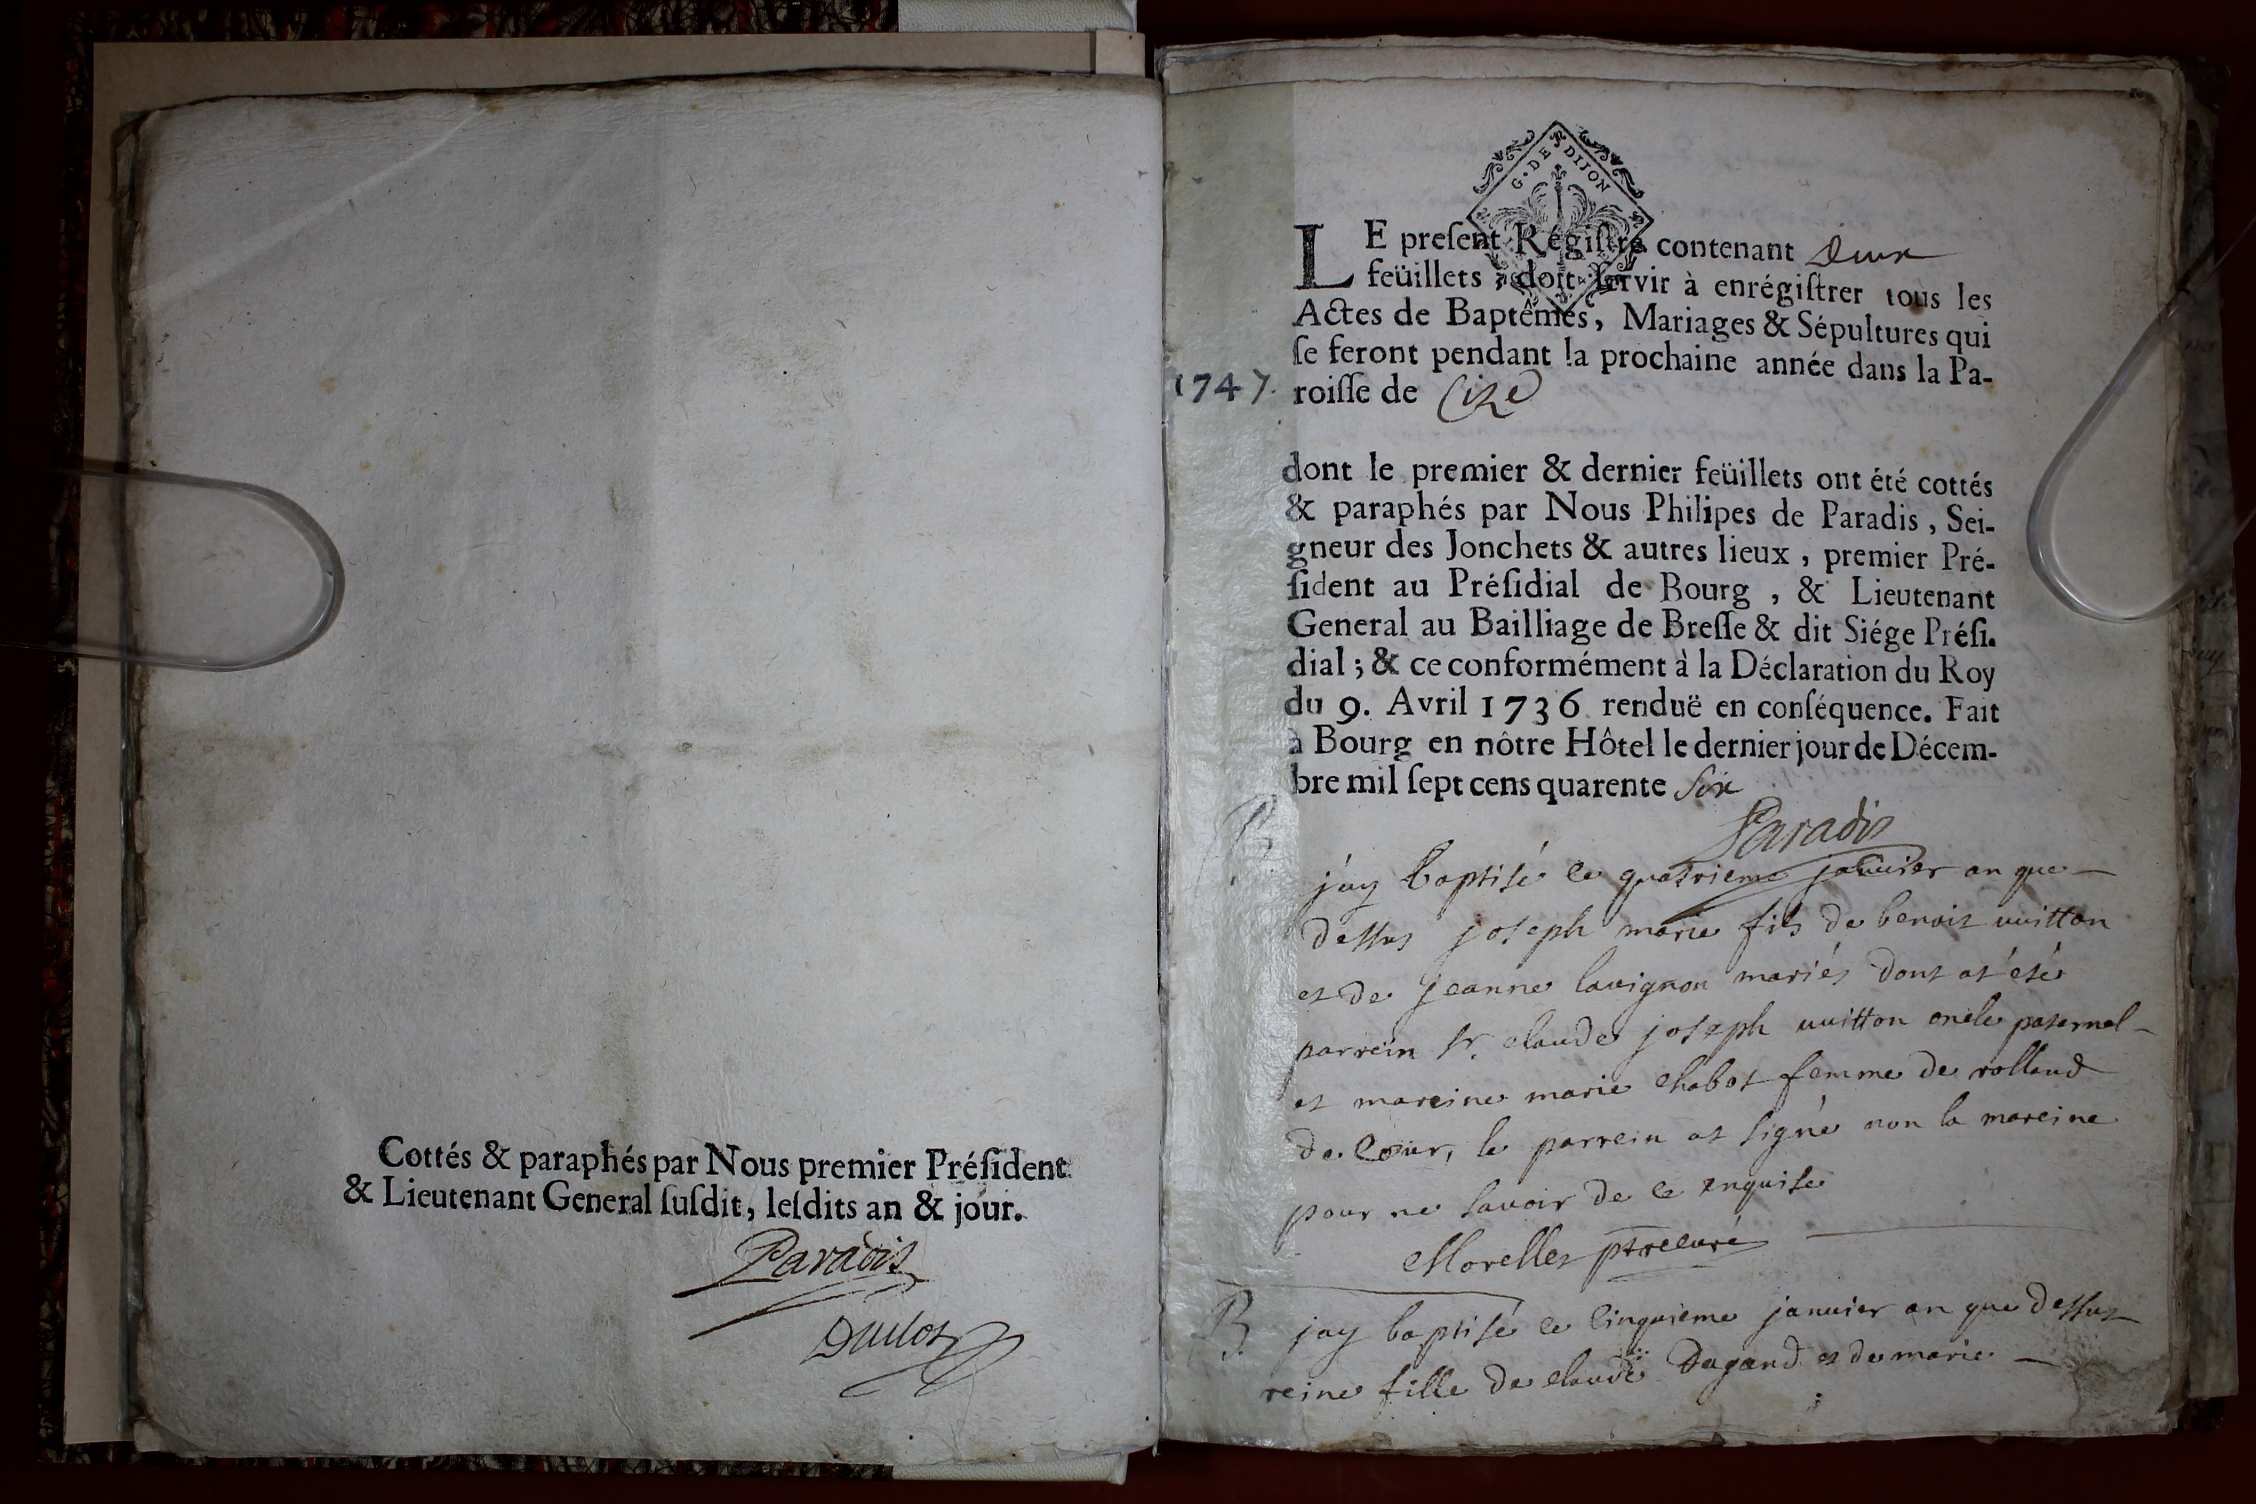 Cottés & paraphés par Nous premier Préſident
& Lieutenant General ſuſdit, leſdits an & jour.
Paradis
G. DE DIJON
LE preſent Régiſtre contenant Deux
feüillets, doit ſervir à enrégiſtrer tous les
Actes de Baptêmes, Mariages & Sépultures qui
ſe feront pendant la prochaine année dans la Pa-
1747. roiſſe de Cize
dont le premier & dernier feüillets ont été cottés
& paraphés par Nous Philipes de Paradis, Sei-
gneur des Jonchets & autres lieux, premier Pré-
ſident au Préſidial de Bourg, & Lieutenant
General au Bailliage de Breſſe & dit Siége Préſi.
dial; & ce conformément à la Déclaration du Roy
du 9. Avril 1736 renduë en conſéquence. Fait
à Bourg en nôtre Hôtel le dernier jour de Décem-
bre mil ſept cens quarente six
Paradis
B.
jay baptisé ce quatrieme janvier an que
dessus joseph marie fils de benoit uuitton
et de jeanne lauignon mariés dont at été
parrein sr. claude joseph uuitton oncle paternel
et mareine marie chabot femme de rolland
de coeur, le parrein at signé non la mareine
pour ne savoir de ce enquise
Morellet ptre curé
B. jay baptisé ce cinquieme januier an que dessus
reine fille de claude Dagand et de marie